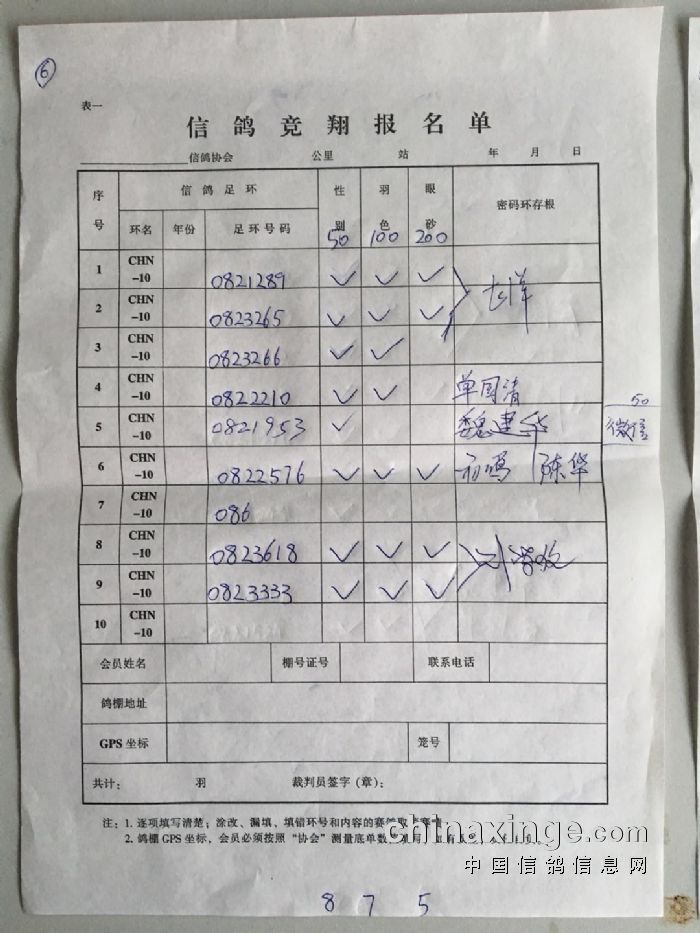 6
表一
信鸽竞翔报名单
信鸽协会 公里 站 年 月 日
序号 信鸽足环 性别 羽色 眼砂 密码环存根
环名 年份 足环号码 50 100 200
1 CHN-10 0821289 ✓ ✓ ✓
2 CHN-10 0823265 ✓ ✓ ✓
3 CHN-10 0823266 ✓ ✓
4 CHN-10 0822210 ✓ ✓ 单国清
50
5 CHN-10 0821953 ✓ 魏建华 微信
6 CHN-10 0822576 ✓ ✓ ✓ 初鸣 陈华
7 CHN-10 086
8 CHN-10 0823618 ✓ ✓ ✓
9 CHN-10 0823333 ✓ ✓ ✓
10 CHN-10
会员姓名 棚号证号 联系电话
鸽棚地址
GPS 坐标 笼号
共计： 羽 裁判员签字（章）：
注：1. 逐项填写清楚；涂改、漏填、填错环号和内容的赛鸽取
2. 鸽棚 GPS 坐标，会员必须按照“协会”测量底单数
chinaxinge.com
中国信鸽信息网
8 7 5